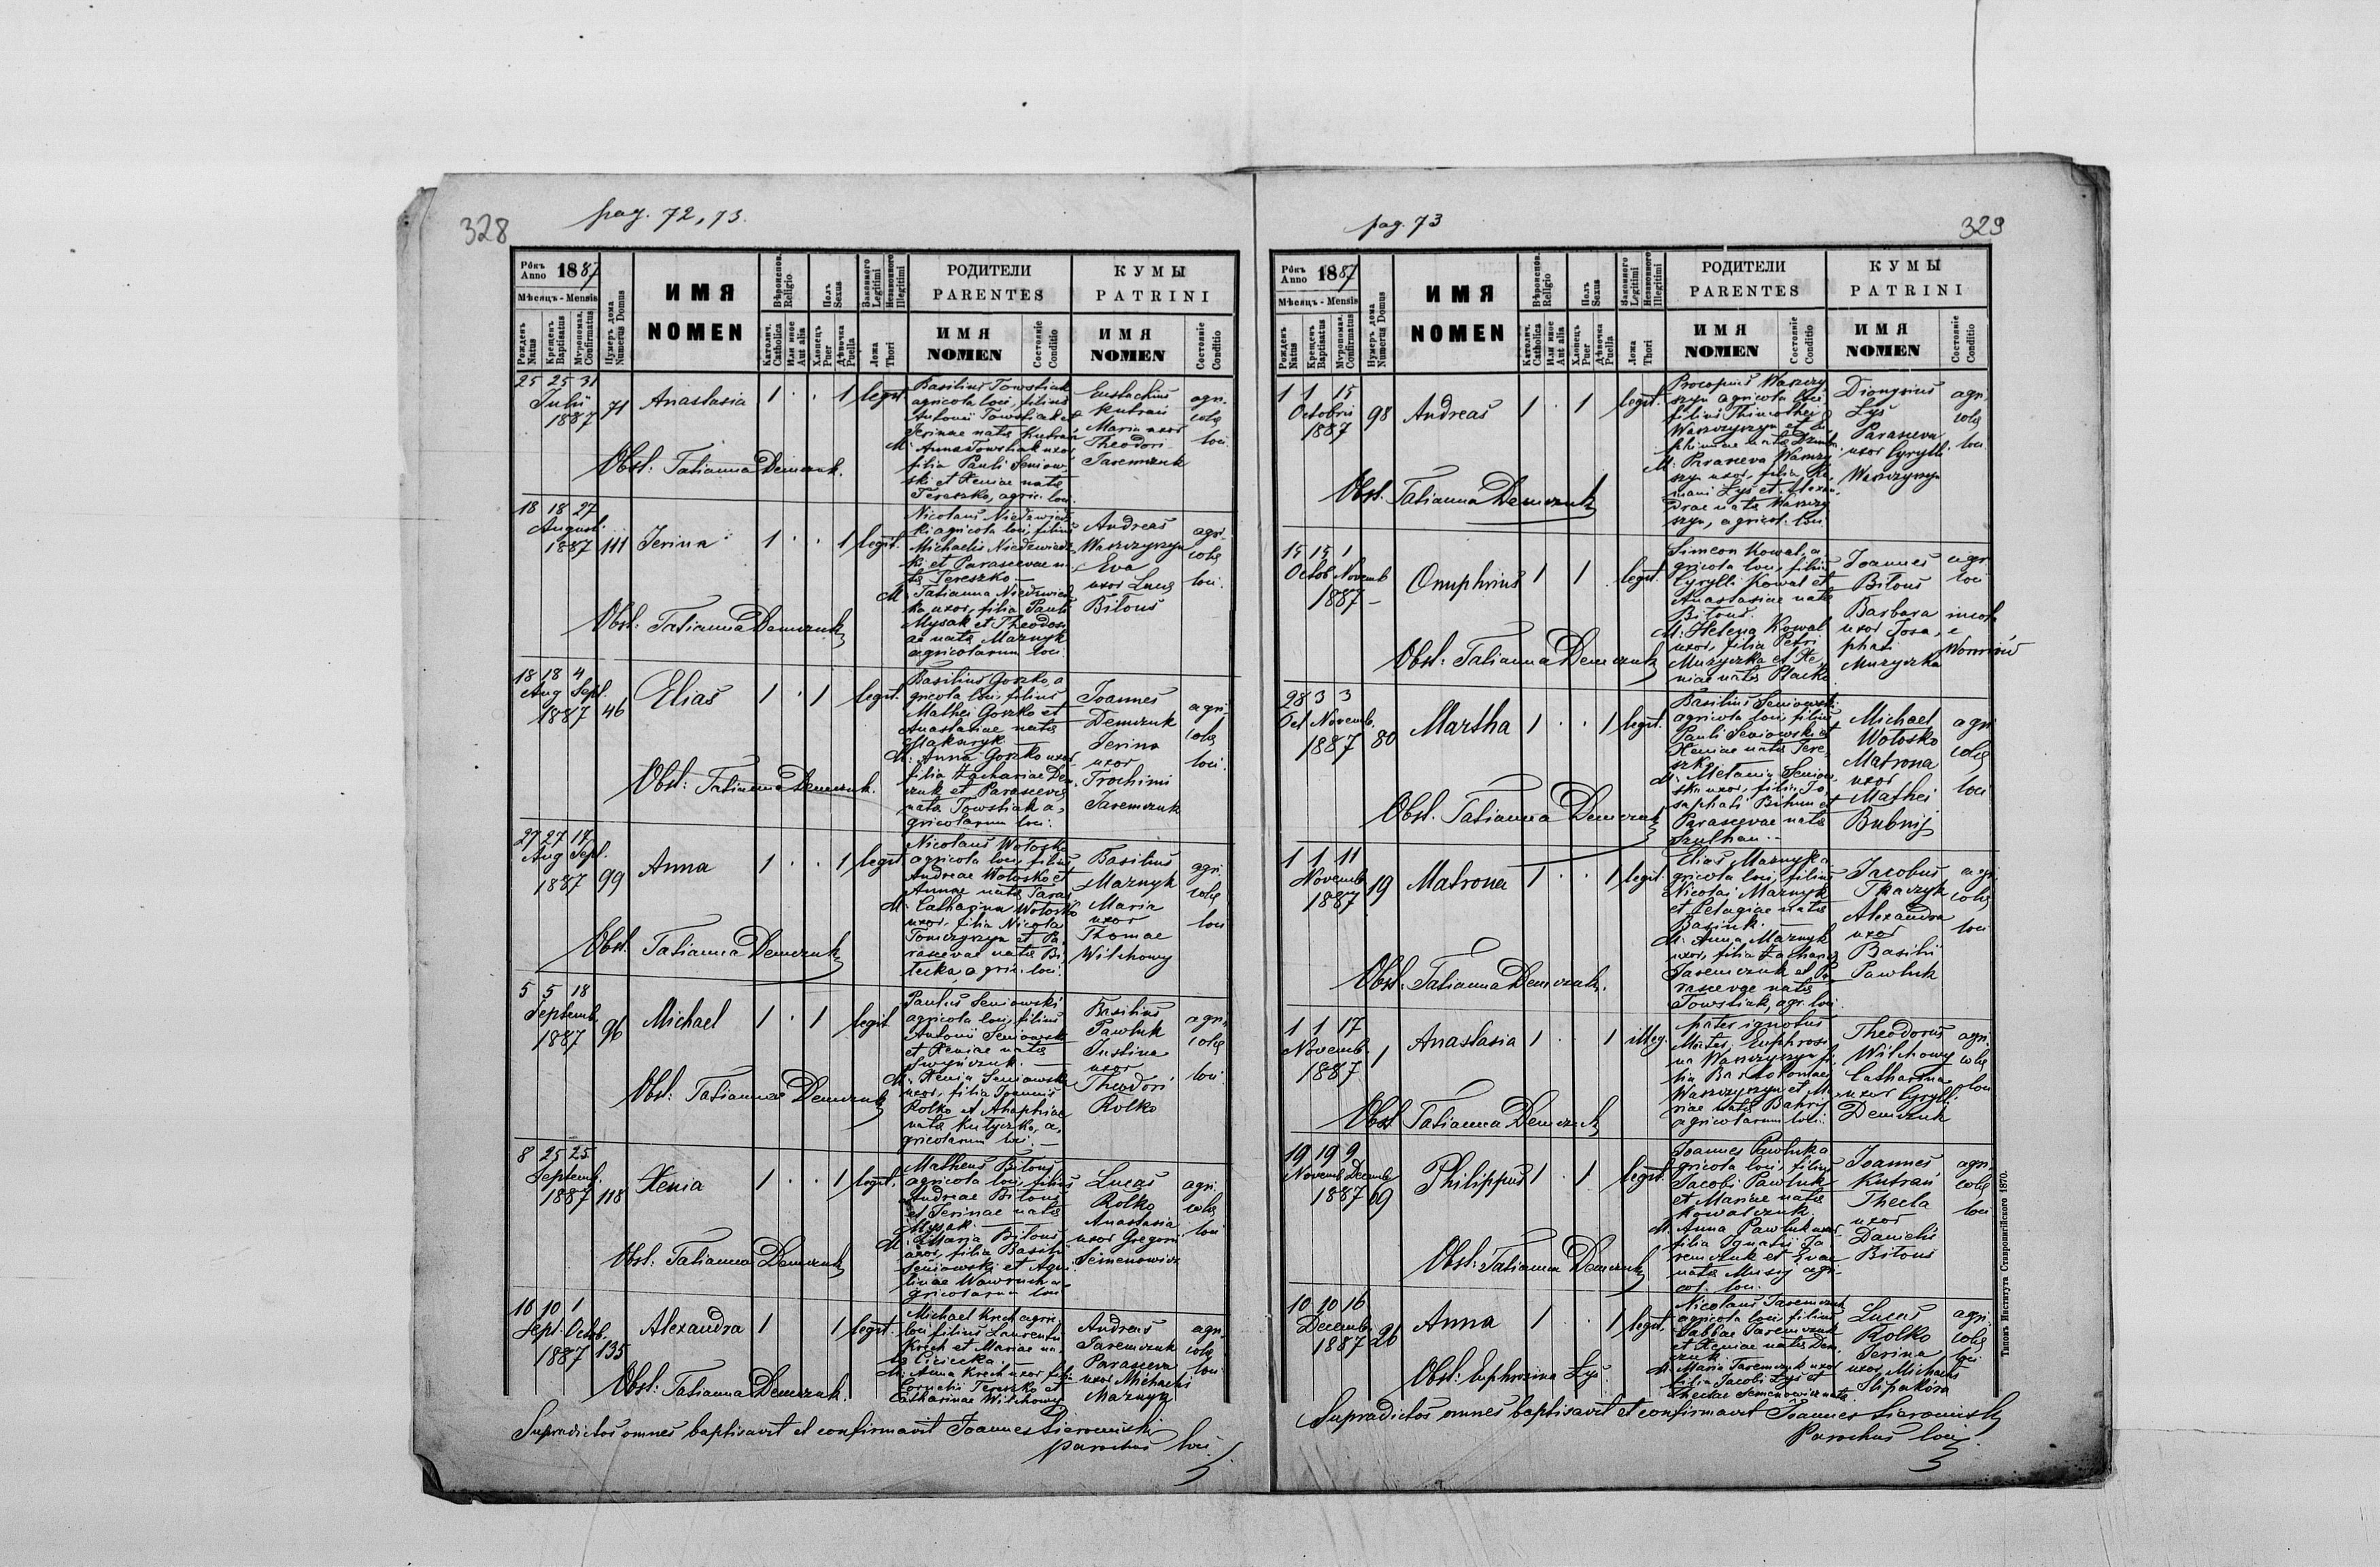 328
pag. 72, 73.
Рôкъ Anno 1887
Мѣсяцъ - Mensis
Рожденъ Natus
Крещенъ Baptisatus
Мѵропомаз. Confirmatus
Нумеръ дома Numerus Domus
ИМЯ
NOMEN
Вѣроиспов. Religio
Католич. Catholica
Или иное Aut alia
Полъ Sexus
Хлопецъ Puer
Дѣвочка Puella
Законного Legitimi
Незаконного Illegitimi
Ложа Thori
РОДИТЕЛИ
PARENTES
ИМЯ
NOMEN
Состояніе Conditio
КУМЫ
PATRINI
ИМЯ
NOMEN
Состояніе Conditio
25 25 31
Julii
1887 71 Anastasia 1 . . 1 legit.
Basilius Towstiak
agricola loci, filius
Antonii Towstiak et
Irinae nata Kutrań
M: Anna Towstiak uxor
filia Pauli Seniow-
ski et Xeniae nata
Tereszko, agric. loci.
Eustachius
Kutrań
Maria uxor
Theodori
Jaremczuk
agri-
colæ
loci
Obst: Tatianna Demczuk.
18 18 27
August.
1887 111 Irina 1 . . 1 legit.
Nicolaus Niedzwiedz
ki agricola loci, filius
Michaelis Niedzwiedz
ki et Parascevae na
ta Tereszko
M: Tatianna Niedzwiedz
ka uxor, filia Pauli
Mysak et Theodosi
ae nata Maznyk
agricolarum loci
Andreas
Waszczyszyn
Eva
uxor Lucæ
Biłous
agri-
colæ
loci
Obst: Tatianna Demczuk
18 18 4
Aug Sept.
1887 46 Elias 1 . 1 legit.
Basilius Goszko, a
gricola loci, filius
Mathei Goszko et
Anastasiae nata
M: Anna Goszko uxor
filia Zachariae Dem
czuk et Parascevæ
nata Towstiak a-
gricolarum loci.
Joannes
Demczuk
Irina
uxor
Trochimi
Jaremczuk
agri
colæ
loci
Obst: Tatianna Demczuk.
27 27 17
Aug Sept.
1887 99 Anna 1 . . 1 legit.
Nicolaus Wołosko
agricola loci, filius
Andreae Wołosko et
Annae nata Taras
M: Catharina Wołosko
uxor, filia Nicolai
Tomczyszyn et Pa-
rascevae nata Bi
lecka agric. loci.
Basilius
Maznyk
Maria
uxor
Thomae
Wilchowy
agri
colæ
loci
Obst. Tatianna Demczuk
5 5 18
Septemb.
1887 96 Michael 1 . 1 legit
Paulus Seniowski
agricola loci, filius
Antonii Seniowski
et Xeniae nata
M: Xenia Seniowska
uxor, filia Joannis
Rolko et Ahaphiae
nata Kulyczka, a-
gricolarum loci.
Basilius
Pawluk
Justina
uxor
Theodori
Rolko
agri-
colæ
loci
Obst: Tatianna Demczuk
8 25 25
Septemb.
1887 118 Xenia 1 . . 1 legit.
Matheus Biłous
agricola loci, filius
Andreae Biłous
et Irinae nata
Mysak.
M: Maria Biłous
uxor, filia Basilii
Seniowski et Aqui
linae Wawruch a-
gricolarum loci
Lucas
Rolko
Anastasia
uxor Gregorii
Semenowicz
agri
colæ
loci
Obst: Tatianna Demczuk
10 10 1
Sept. Octob.
1887 135 Alexandra 1 1 legit.
Michael Krech agric.
loci filius Laurentii
Krech et Mariae na-
ta Ciciecka
M: Anna Krech uxor filia
Cornelii Tereszko et
Catharinae Wilchowy
Andreas
Jaremczuk
Parasceva
uxor Michaelis
Maznyk
agri-
colæ
loci
Obst: Tatianna Demczuk.
Supradictos omnes baptisavit et confirmavit Joannes Sieromiski
parochus loci.
pag. 73
329
Рôкъ Anno 1887
Мѣсяцъ - Mensis
Рожденъ Natus
Крещенъ Baptisatus
Мѵропомаз. Confirmatus
Нумеръ дома Numerus Domus
ИМЯ
NOMEN
Вѣроиспов. Religio
Католич. Catholica
Или иное Aut alia
Полъ Sexus
Хлопецъ Puer
Дѣвочка Puella
Законного Legitimi
Незаконного Illegitimi
Ложа Thori
РОДИТЕЛИ
PARENTES
ИМЯ
NOMEN
Состояніе Conditio
КУМЫ
PATRINI
ИМЯ
NOMEN
Состояніе Conditio
1 1 15
Octobris
1887 98 Andreas 1 . 1 legit.
Procopius Waszczy
szyn agricola loci
filius Thimothei
Waszczyszyn et Eu
phimiae nata
M: Parasceva Waszczy
szyn uxor, filia Ro
mani Łyś et Alexan
drae nata Waszczy
szyn, agricol. loci
Dionysius
Łyś
Parasceva
uxor Cyrylli
Waszczyszyn
agri
colæ
loci
Obst. Tatianna Demczuk
15 15 1
Octob. Novemb
1887 – Onuphrius 1 1 legit.
Simeon Kowal, a-
gricola loci, filius
Cyrylli Kowal et
Anastasiae nata
Biłous.
M: Helena Kowal
uxor, filia Petri
Muzyczka et Xe-
niae nata Płacko
Joannes
Biłous
Barbara
uxor Josa-
phati
Muzyczka
agri
loci
incola
e
Obst: Tatianna Demczuk
28 3 3
Oct Novemb.
1887 80 Martha 1 . . 1 legit.
Basilius Seniowski
agricola loci, filius
Pauli Seniowski et
Xeniae nata Tere-
szko
M: Melania Seniow
ska uxor, filia Jo-
saphati Bihun et
Parascevae nata
Szulhan.
Michael
Wołosko
Matrona
uxor
Mathei
Bubnij
agri
colæ
loci
Obst. Tatianna Demczuk
1 1 11
Novemb.
1887 19 Matrona 1 . . 1 legit.
Elias Maznyk a
gricola loci, filius
Nicolai Maznyk
et Pelagiae nata
Basiuk.
M: Anna Maznyk
uxor, filia Zachariæ
Jaremczuk et Pa
rascevae nata
Towstiak, agr. loci.
Jacobus
Tkaczyk
Alexandra
uxor
Basilii
Pawluk
agri
colæ
loci
Obst: Tatianna Demczuk.
1 1 17
Novemb.
1887 1 Anastasia 1 . 1 illeg.
pater ignotus
Mater: Euphrosi
na Waszczyszyn fi-
lia Bartolomaei
Waszczyszyn et Ma-
riae nata Bahrij
agricolarum loci.
Theodorus
Wilchowy
Catharina
uxor Cyrylli
Demczuk
agri-
colæ
loci
Obst Tatianna Demczuk
19 19 9
Novemb Decemb
1887 69 Philippus 1 . 1 legit.
Joannes Pawluk a
gricola loci, filius
Jacobi Pawluk
et Mariae nata
Kowalczuk.
M: Anna Pawluk uxor
filia Ignatii Ja
remczuk et Evae
nata Musij agri-
col. loci.
Joannes
Kutrań
Thecla
uxor
Danielis
Biłous
agri.
colæ
loci
Obst: Tatianna Demczuk
10 10 16
Decemb.
1887 26 Anna 1 . 1 legit.
Nicolaus Jaremczuk
agricola loci, filius
Sabbae Jaremczuk
et Xeniae nata Dem
czuk
M: Maria Jaremczuk uxor
filia Jacobi Łyś et
Theclae Semenowicz nata
Lucas
Rolko
Irina
uxor Michaelis
agri.
colæ
loci
Obst: Euphrosina Łyś.
Supradictos omnes baptisavit et confirmavit Joannes Sieromiski
Parochus loci.
Типомъ Института Ставропигійского 1870.